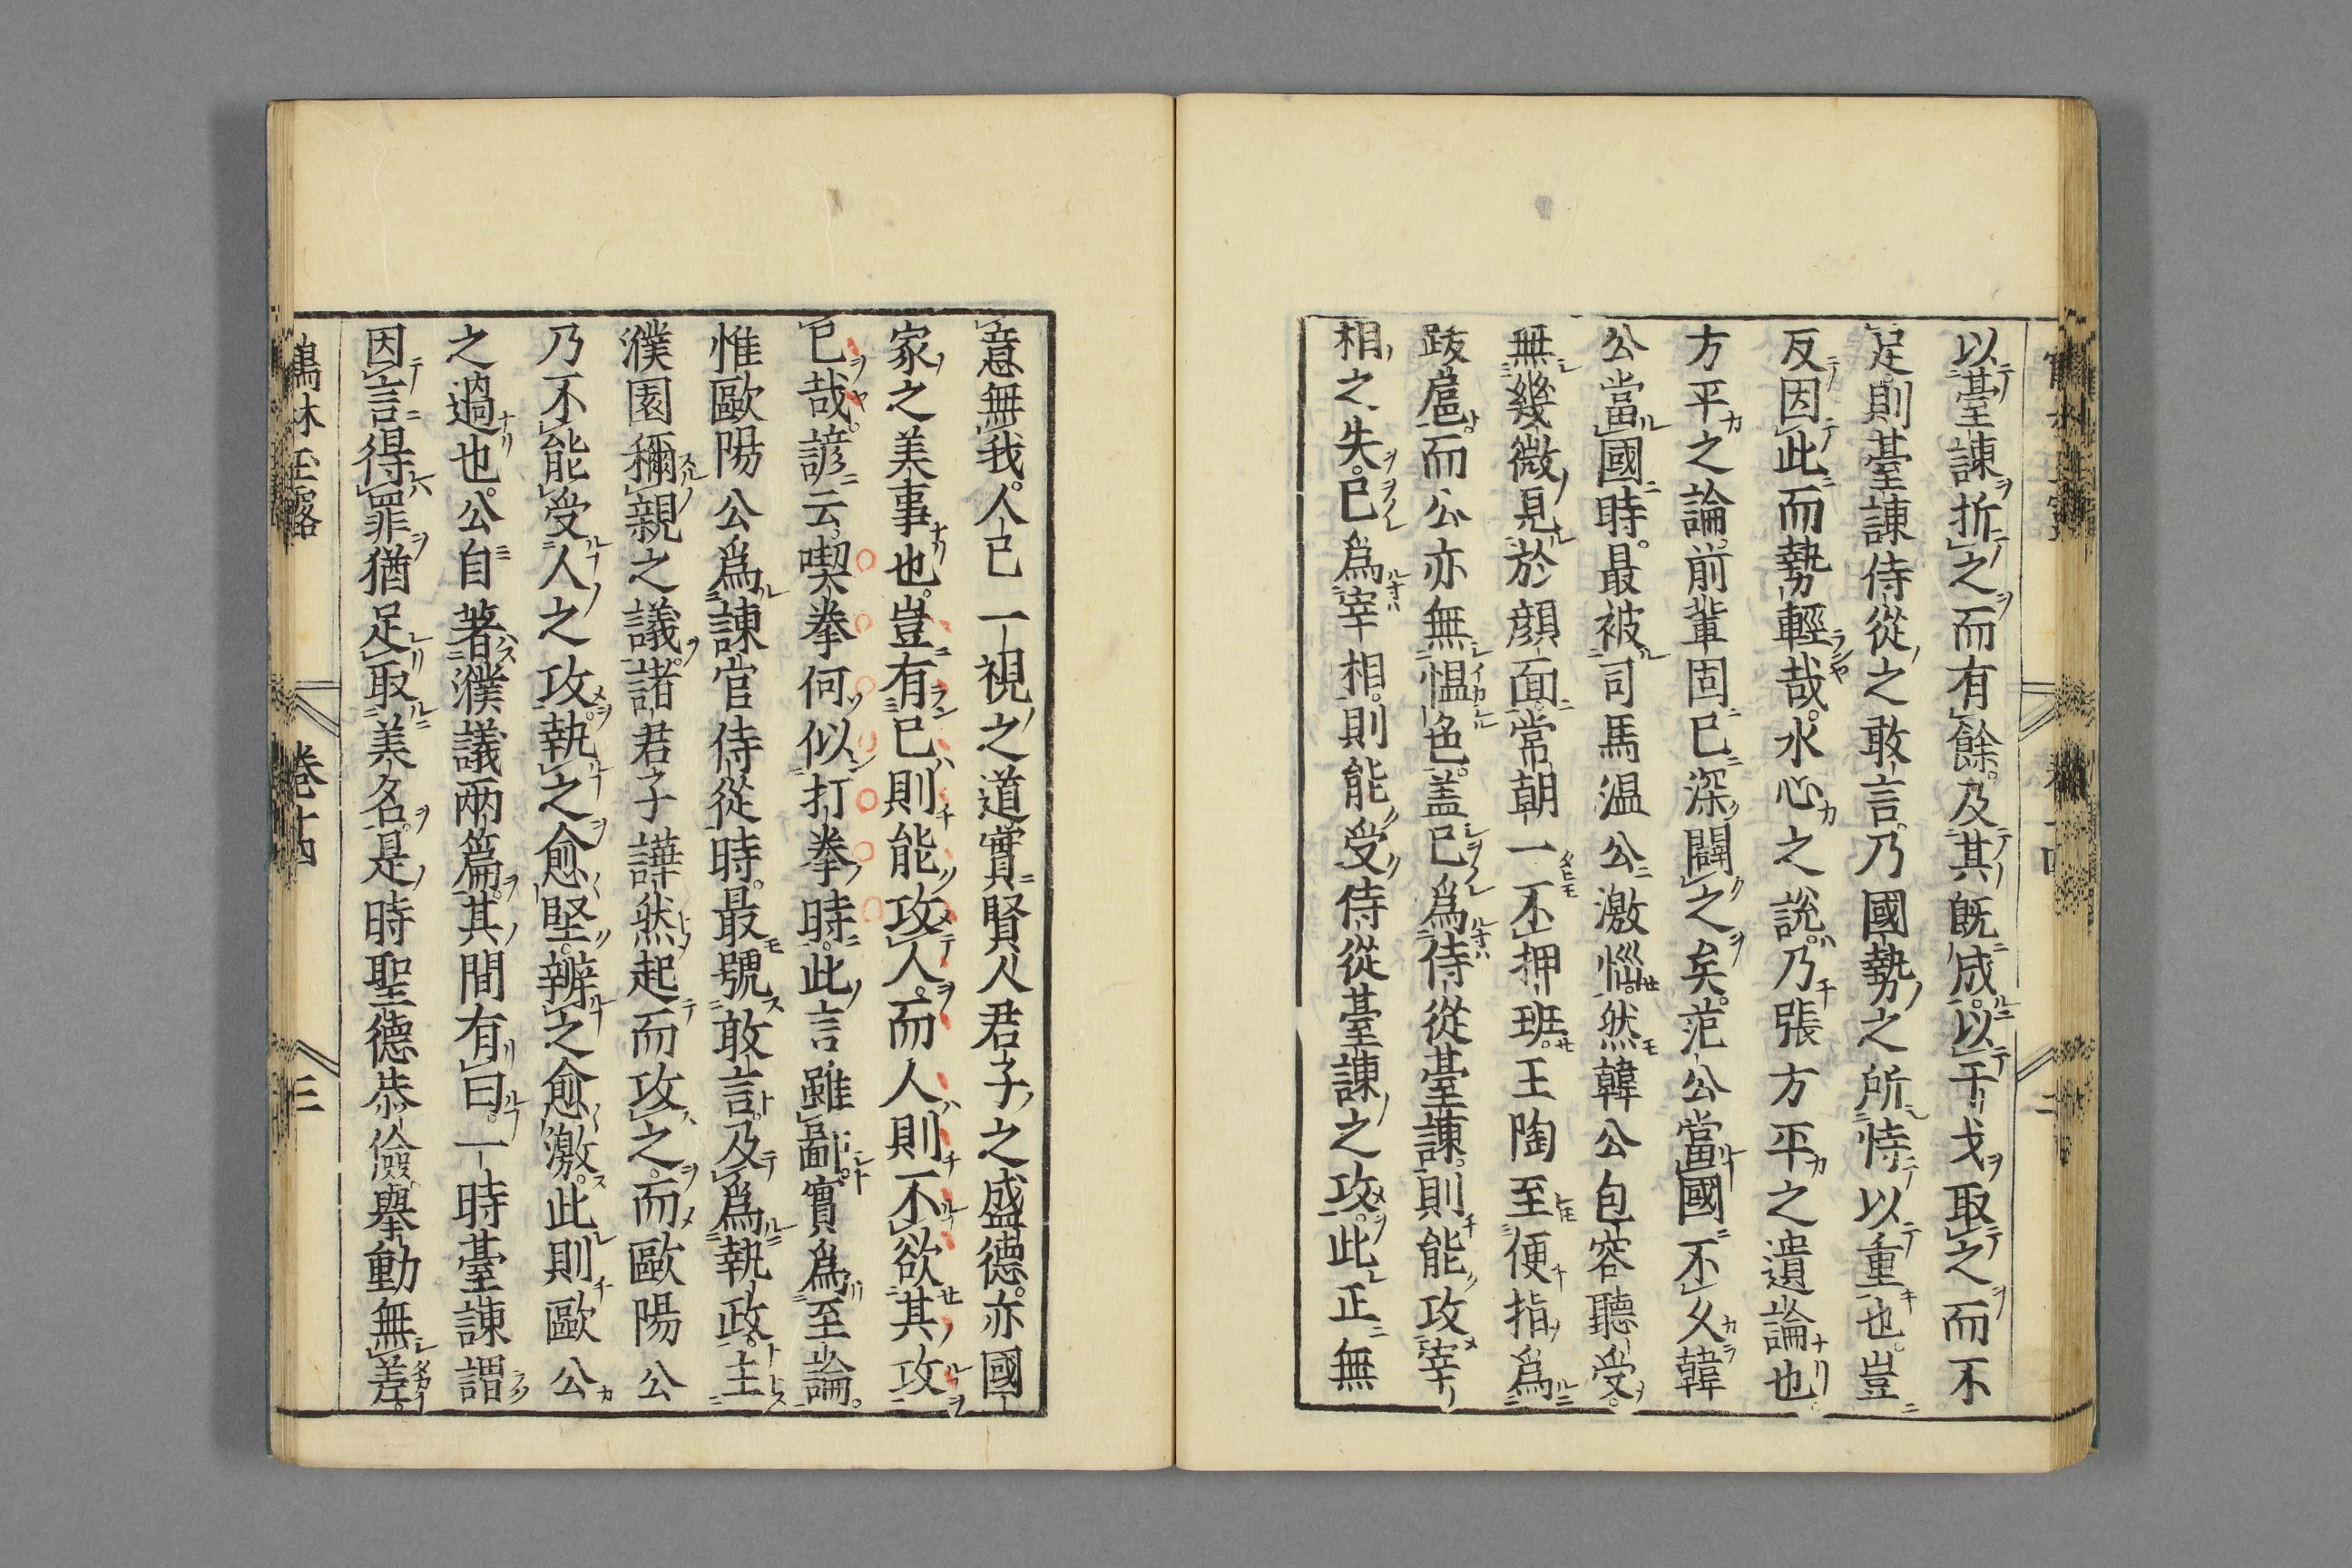 以臺諫折之而有餘及其既成以干戈取之而不
足則臺諫侍從之敢言乃國勢之所恃以重也豈
反因此而勢輕哉水心之說乃張方平之遺論也
方平之論前輩固已深闢之矣范公當國不久韓
公當國時最被司馬温公激惱然韓公包容聽受
無幾微見於顔面常朝一不押班王陶至便指爲
跋扈而公亦無愠色蓋已爲侍從臺諫則能攻宰
相之失已爲宰相則能受侍從臺諫之攻此正無
意無我人己一視之道實賢人君子之盛德亦國
家之美事也豈有已則能攻人而人則不欲其攻
已哉諺云喫拳何似打拳時此言雖鄙實爲至論
惟歐陽公爲諫官侍從時最號敢言及爲執政主
濮園稱親之議諸君子譁然起而攻之而歐陽公
乃不能受人之攻執之愈堅辨之愈激此則歐公
之過也公自著濮議兩篇其間有曰一時臺諫謂
因言得罪猶足取美名是時聖德恭儉舉動無差
鶴林玉露　卷十四　三